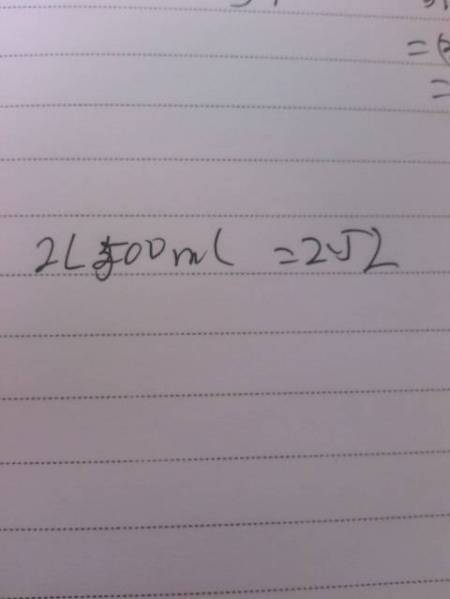 =
=
2L500ml =25L